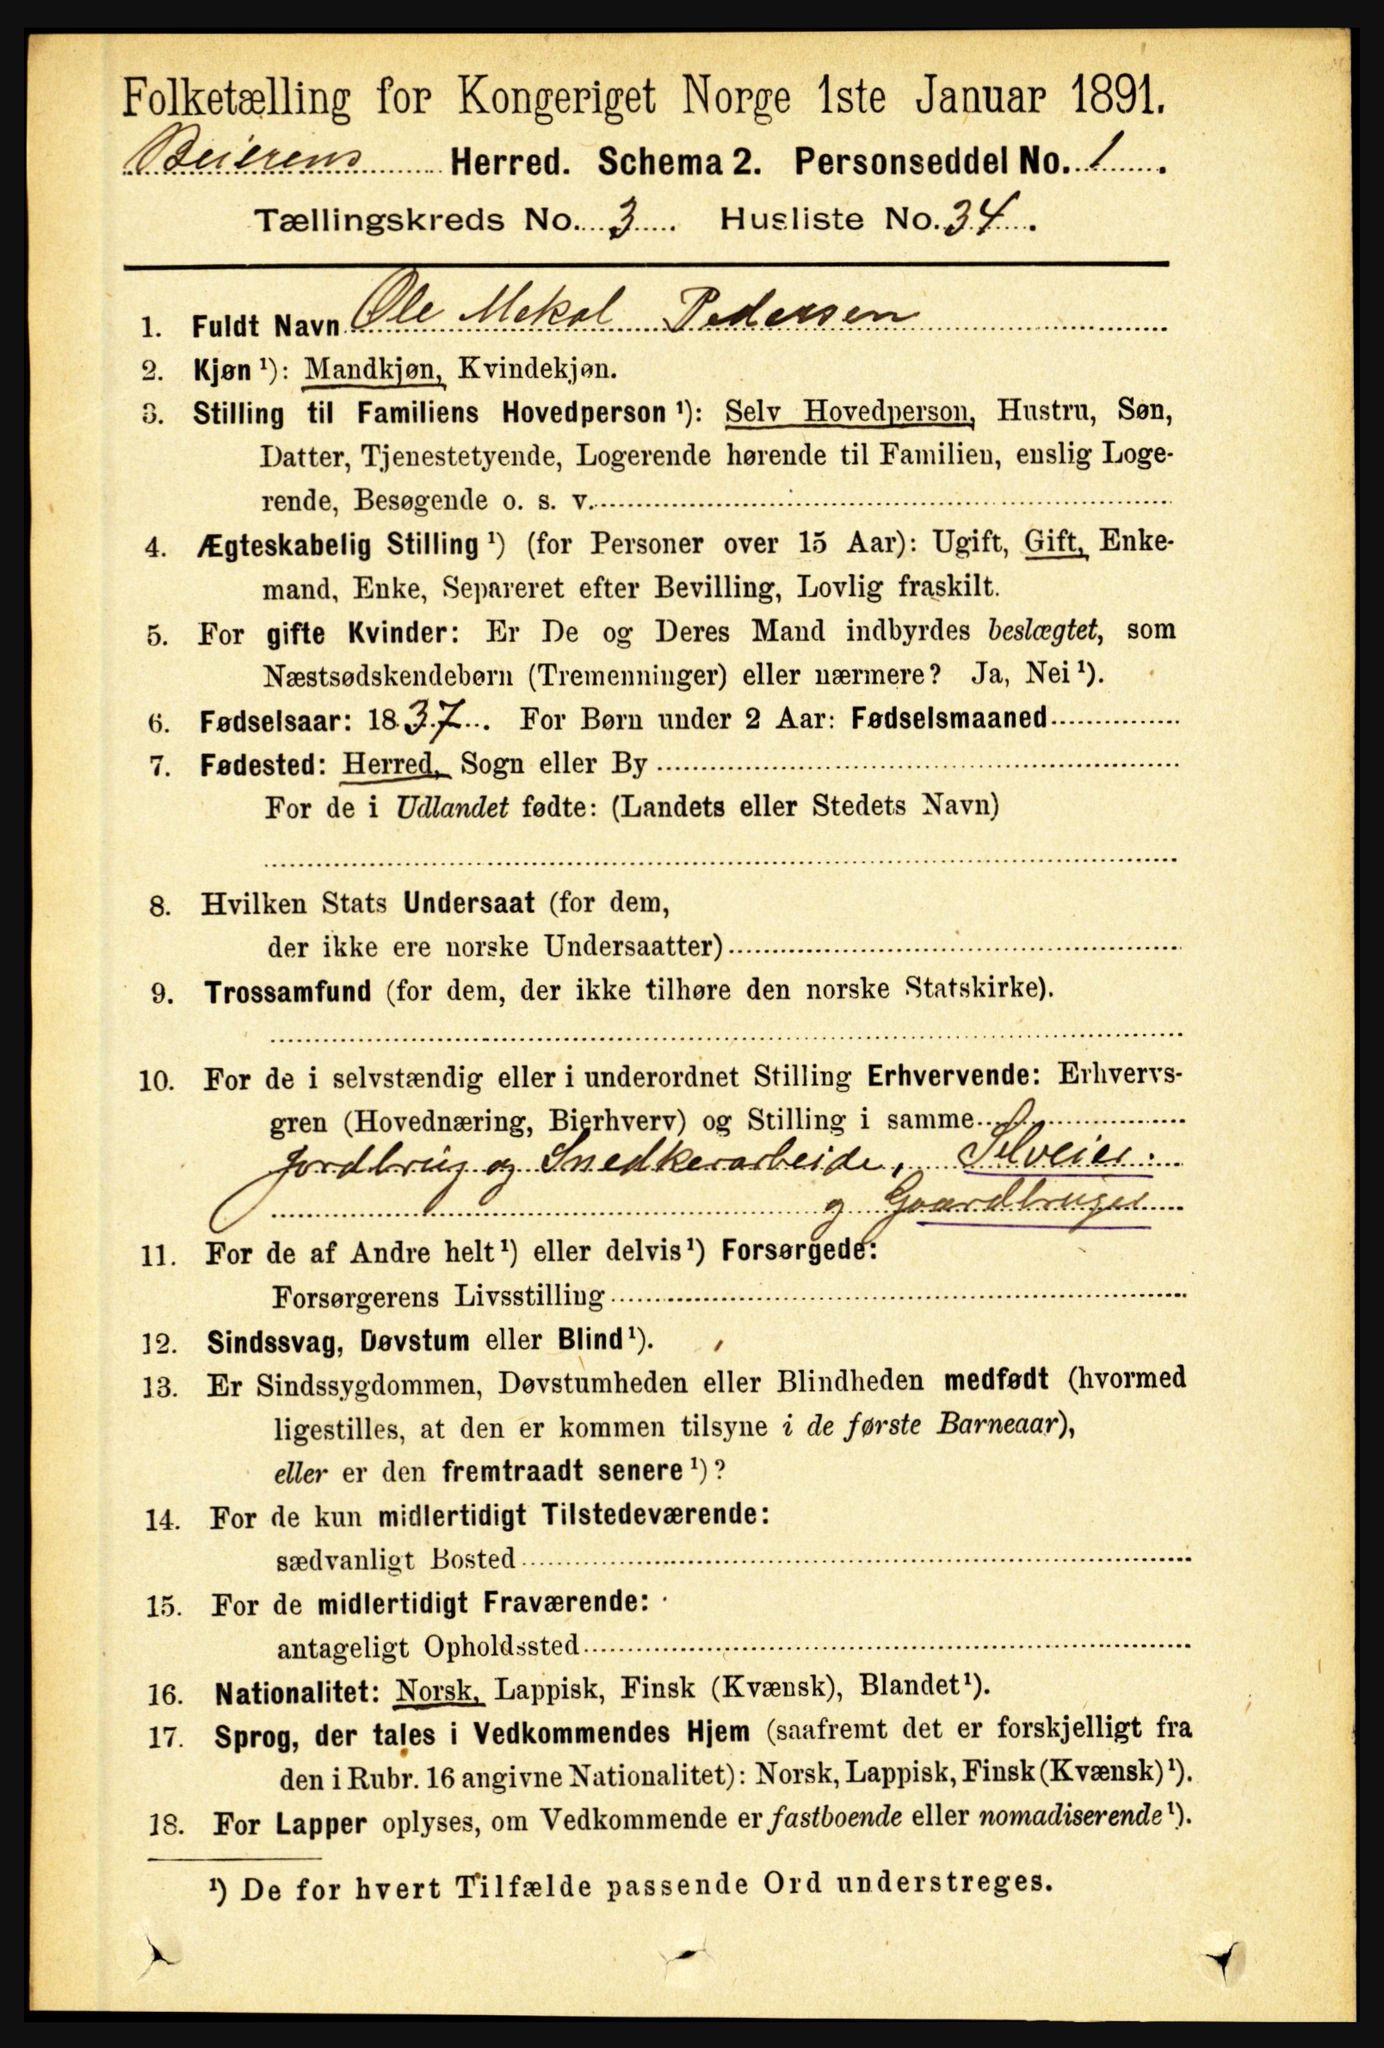 Folketælling for Kongeriget Norge 1ste Januar 1891.
Beierens Herred. Schema 2. Personseddel No. 1.
Tællingskreds No. 3. Husliste No. 34.
1. Fuldt Navn Ole Mekal Pedersen
2. Kjøn ¹): Mandkjøn, Kvindekjøn.
3. Stilling til Familiens Hovedperson ¹): Selv Hovedperson, Hustru, Søn,
Datter, Tjenestetyende, Logerende hørende til Familien, enslig Loge-
rende, Besøgende o. s. v.
4. Ægteskabelig Stilling ¹) (for Personer over 15 Aar): Ugift, Gift, Enke-
mand, Enke, Separeret efter Bevilling, Lovlig fraskilt.
5. For gifte Kvinder: Er De og Deres Mand indbyrdes beslægtet, som
Næstsødskendebørn (Tremenninger) eller nærmere? Ja, Nei ¹).
6. Fødselsaar: 1837. For Børn under 2 Aar: Fødselsmaaned
7. Fødested: Herred, Sogn eller By
For de i Udlandet fødte: (Landets eller Stedets Navn)
8. Hvilken Stats Undersaat (for dem,
der ikke ere norske Undersaatter)
9. Trossamfund (for dem, der ikke tilhøre den norske Statskirke).
10. For de i selvstændig eller i underordnet Stilling Erhvervende: Erhvervs-
gren (Hovednæring, Bierhverv) og Stilling i samme
Jordbrug og Snedkerarbeide, Selveier
og Gaardbruger
11. For de af Andre helt ¹) eller delvis ¹) Forsørgede:
Forsørgerens Livsstilling
12. Sindssvag, Døvstum eller Blind ¹).
13. Er Sindssygdommen, Døvstumheden eller Blindheden medfødt (hvormed
ligestilles, at den er kommen tilsyne i de første Barneaar),
eller er den fremtraadt senere ¹)?
14. For de kun midlertidigt Tilstedeværende:
sædvanligt Bosted
15. For de midlertidigt Fraværende:
antageligt Opholdssted
16. Nationalitet: Norsk, Lappisk, Finsk (Kvænsk), Blandet ¹).
17. Sprog, der tales i Vedkommendes Hjem (saafremt det er forskjelligt fra
den i Rubr. 16 angivne Nationalitet): Norsk, Lappisk, Finsk (Kvænsk) ¹).
18. For Lapper oplyses, om Vedkommende er fastboende eller nomadiserende ¹).
¹) De for hvert Tilfælde passende Ord understreges.